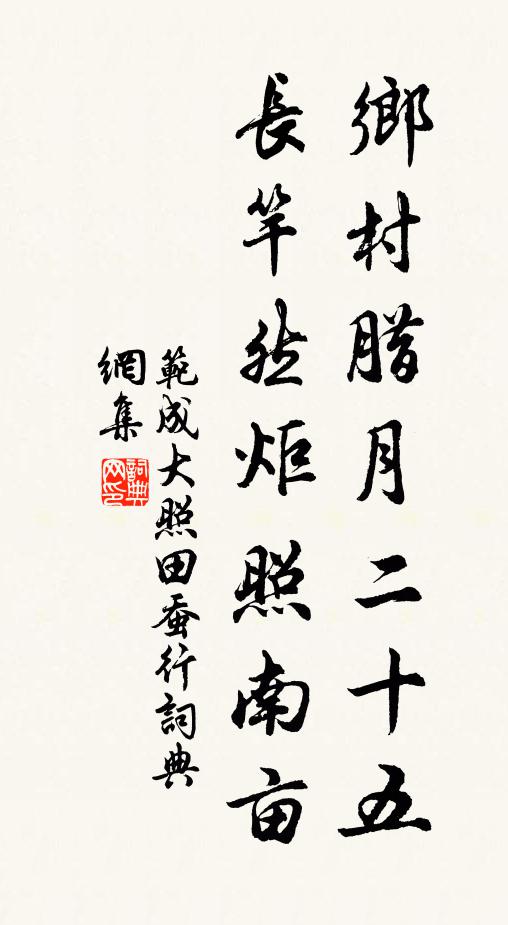 鄉村腊月二十五
長竿然炬照南亩
範成大照田蚕行詞典
網集
詞典网印